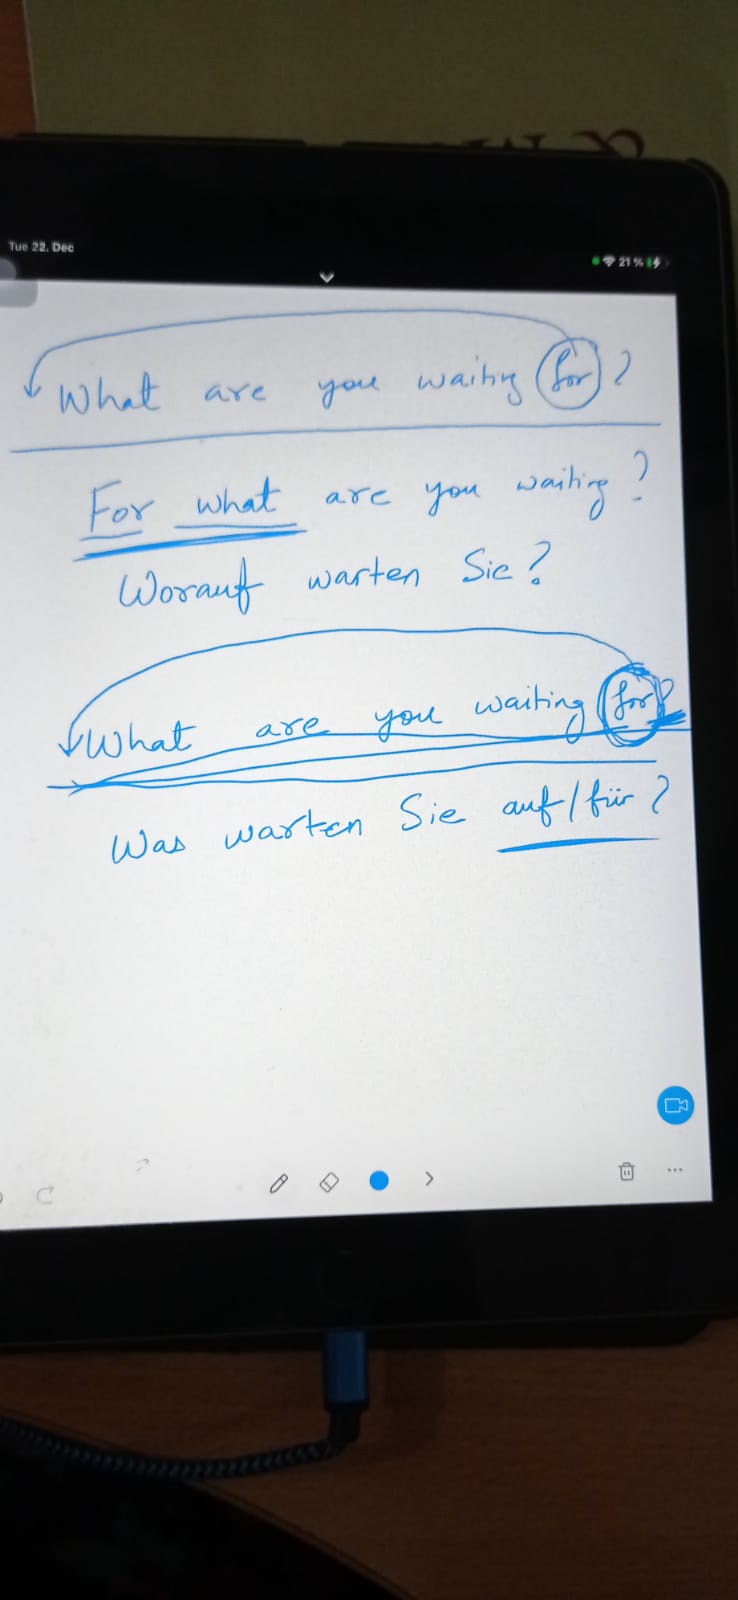 Tue 22. Dec
21 %
What are you waiting for?
For what are you waiting?
Worauf warten Sie?
What are you waiting for?
Was warten Sie auf/für?